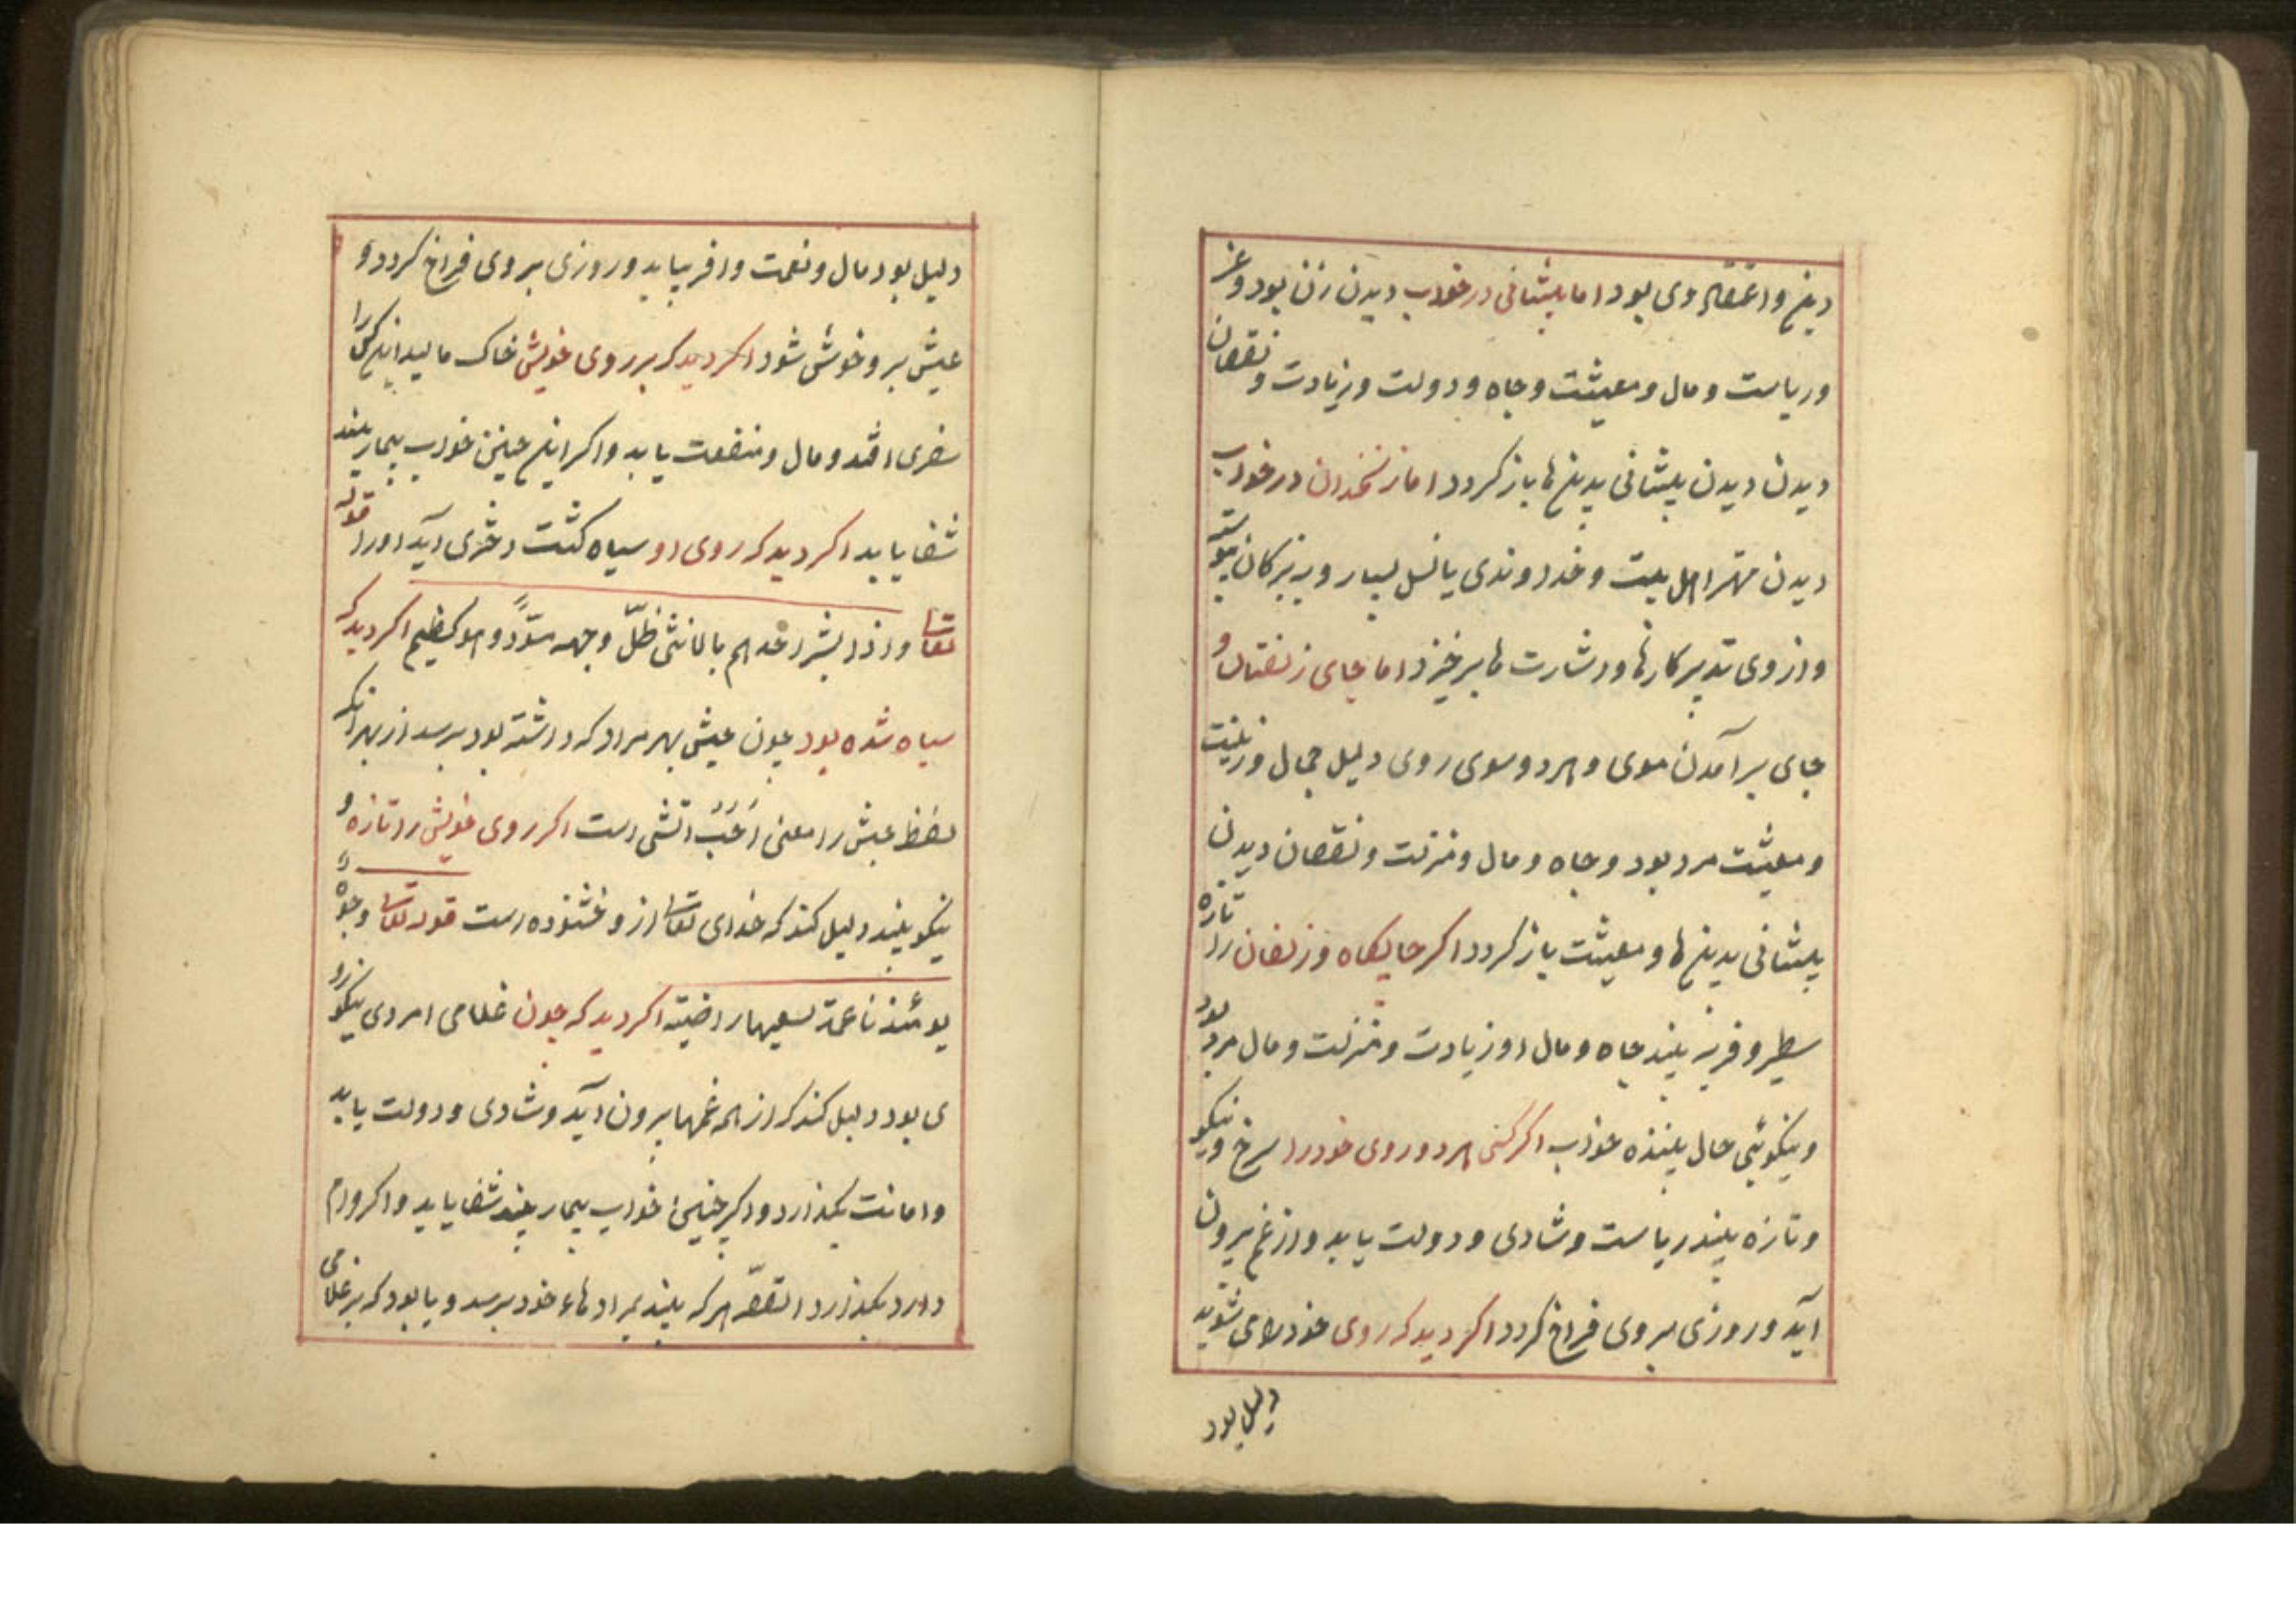 دین و اعتقاد وی بود اما پیشانی در خواب دیدن زن بود و عز
و ریاست و مال و معیشت و جاه و دولت و زیادت و نقصان
دیدن دیدن پیشانی بدینها باز کردد اما زنخدان در خواب
دیدن مهتر اهل بیت و خداوندی یا نسل بسیار و بزرکان پیوسته
و از وی تدبیر کارها و اشارت ها برخیزد اما جای زلفتان و
جای برآمدن موی و هر دو سوی روی دلیل جمال و زینت
و معیشت مرد بود و جاه و مال و منزلت و نقصان دیدن
پیشانی بدینها و معیشت باز کردد اکر جایکاه و زلفان را تازه
سطبر و فربه بیند جاه و مال او زیادت و منزلت و مال مرد بود
و نیکوئی حال بیننده خواب اکر کسی هر دو روی خود را سرخ و نیکو
و تازه بیند ریاست و شادی و دولت یابد و از غم بیرون
آید و روزی بر وی فراخ کردد اکر دید که روی خود را می شوید
دلیل بود
دلیل بود مال و نعمت وافر بیابد و روزی بر وی فراخ کردد و
عیش برو خوش شود اکر دید که بر روی خویش خاک مالید این کس را
سفری افتد و مال و منفعت یابد و اکر این چنین خواب بیمار بیند
شفا یابد اکر دید که روی او سیاه کشت دختری آید او را قوله
تعالی و اذا بشر احدهم بالانثی ظلّ وجهه مسوّدًا و هو کظیم اکر دید که
سیاه شده بود چون عیش بهر مراد که داشته بود برسد از بهر آنکه
لفظ عیش را معنی اَحَبّ اتشی است اکر روی خویش را تازه و
نیکو بیند دلیل کند که خدای تعالی ازو خشنوده است قوله تعالی وجوهٌ
یومئذ ناعمة لسعیها راضیته اکر دید که چون غلامی امردی نیکو رو
ی بود دلیل کند که از همه غمها برون آید و شادی و دولت یابد
و امانت بکذارد و اکر چنین خواب بیمار بیند شفا یابد و اکر وام
دارد بکذارد القصّه هر که بیند بمرادهاء خود برسد و یا بود که بر غلامی